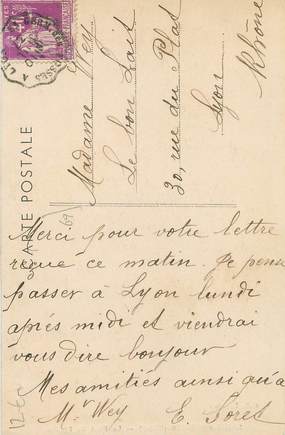 CARTE POSTALE
Madame Wey
Le bon Lait
30, rue du Plat
Lyon
Rhône
69
Merci pour votre lettre
reçue ce matin. Je pense
passer à Lyon lundi
après midi et viendrai
vous dire bonjour
Mes amitiés ainsi qu'à
Mr Wey E. Sorel